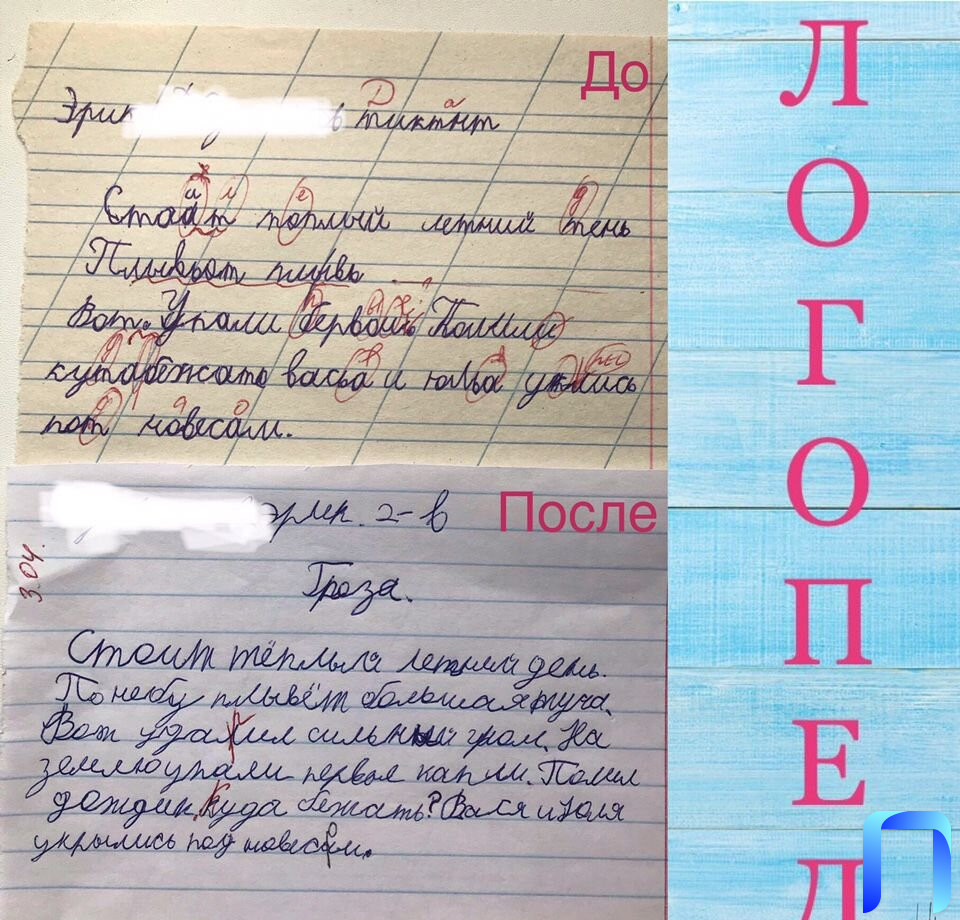 До
Эрик в тиктнт
Стоат топлый летний тень
Плывьот
Вот. Упали
кутабежать васьа и юльа
пот навесам.
После
Эрик. 2-в
3.04.
Гроза.
Стоит тёплый летний день.
По небу плывёт большая туча.
Вот ударил сильный гром. На
землю упали первые капли. Полил
дождик. Куда бежать? Вася и Юля
укрылись под навесом.
ЛОГОПЕД